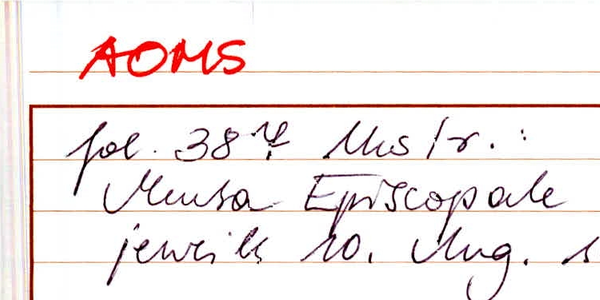 AOMS
fol. 38 Mus/r.:
Mensa Episcopale
jeweils 10. Aug. 1